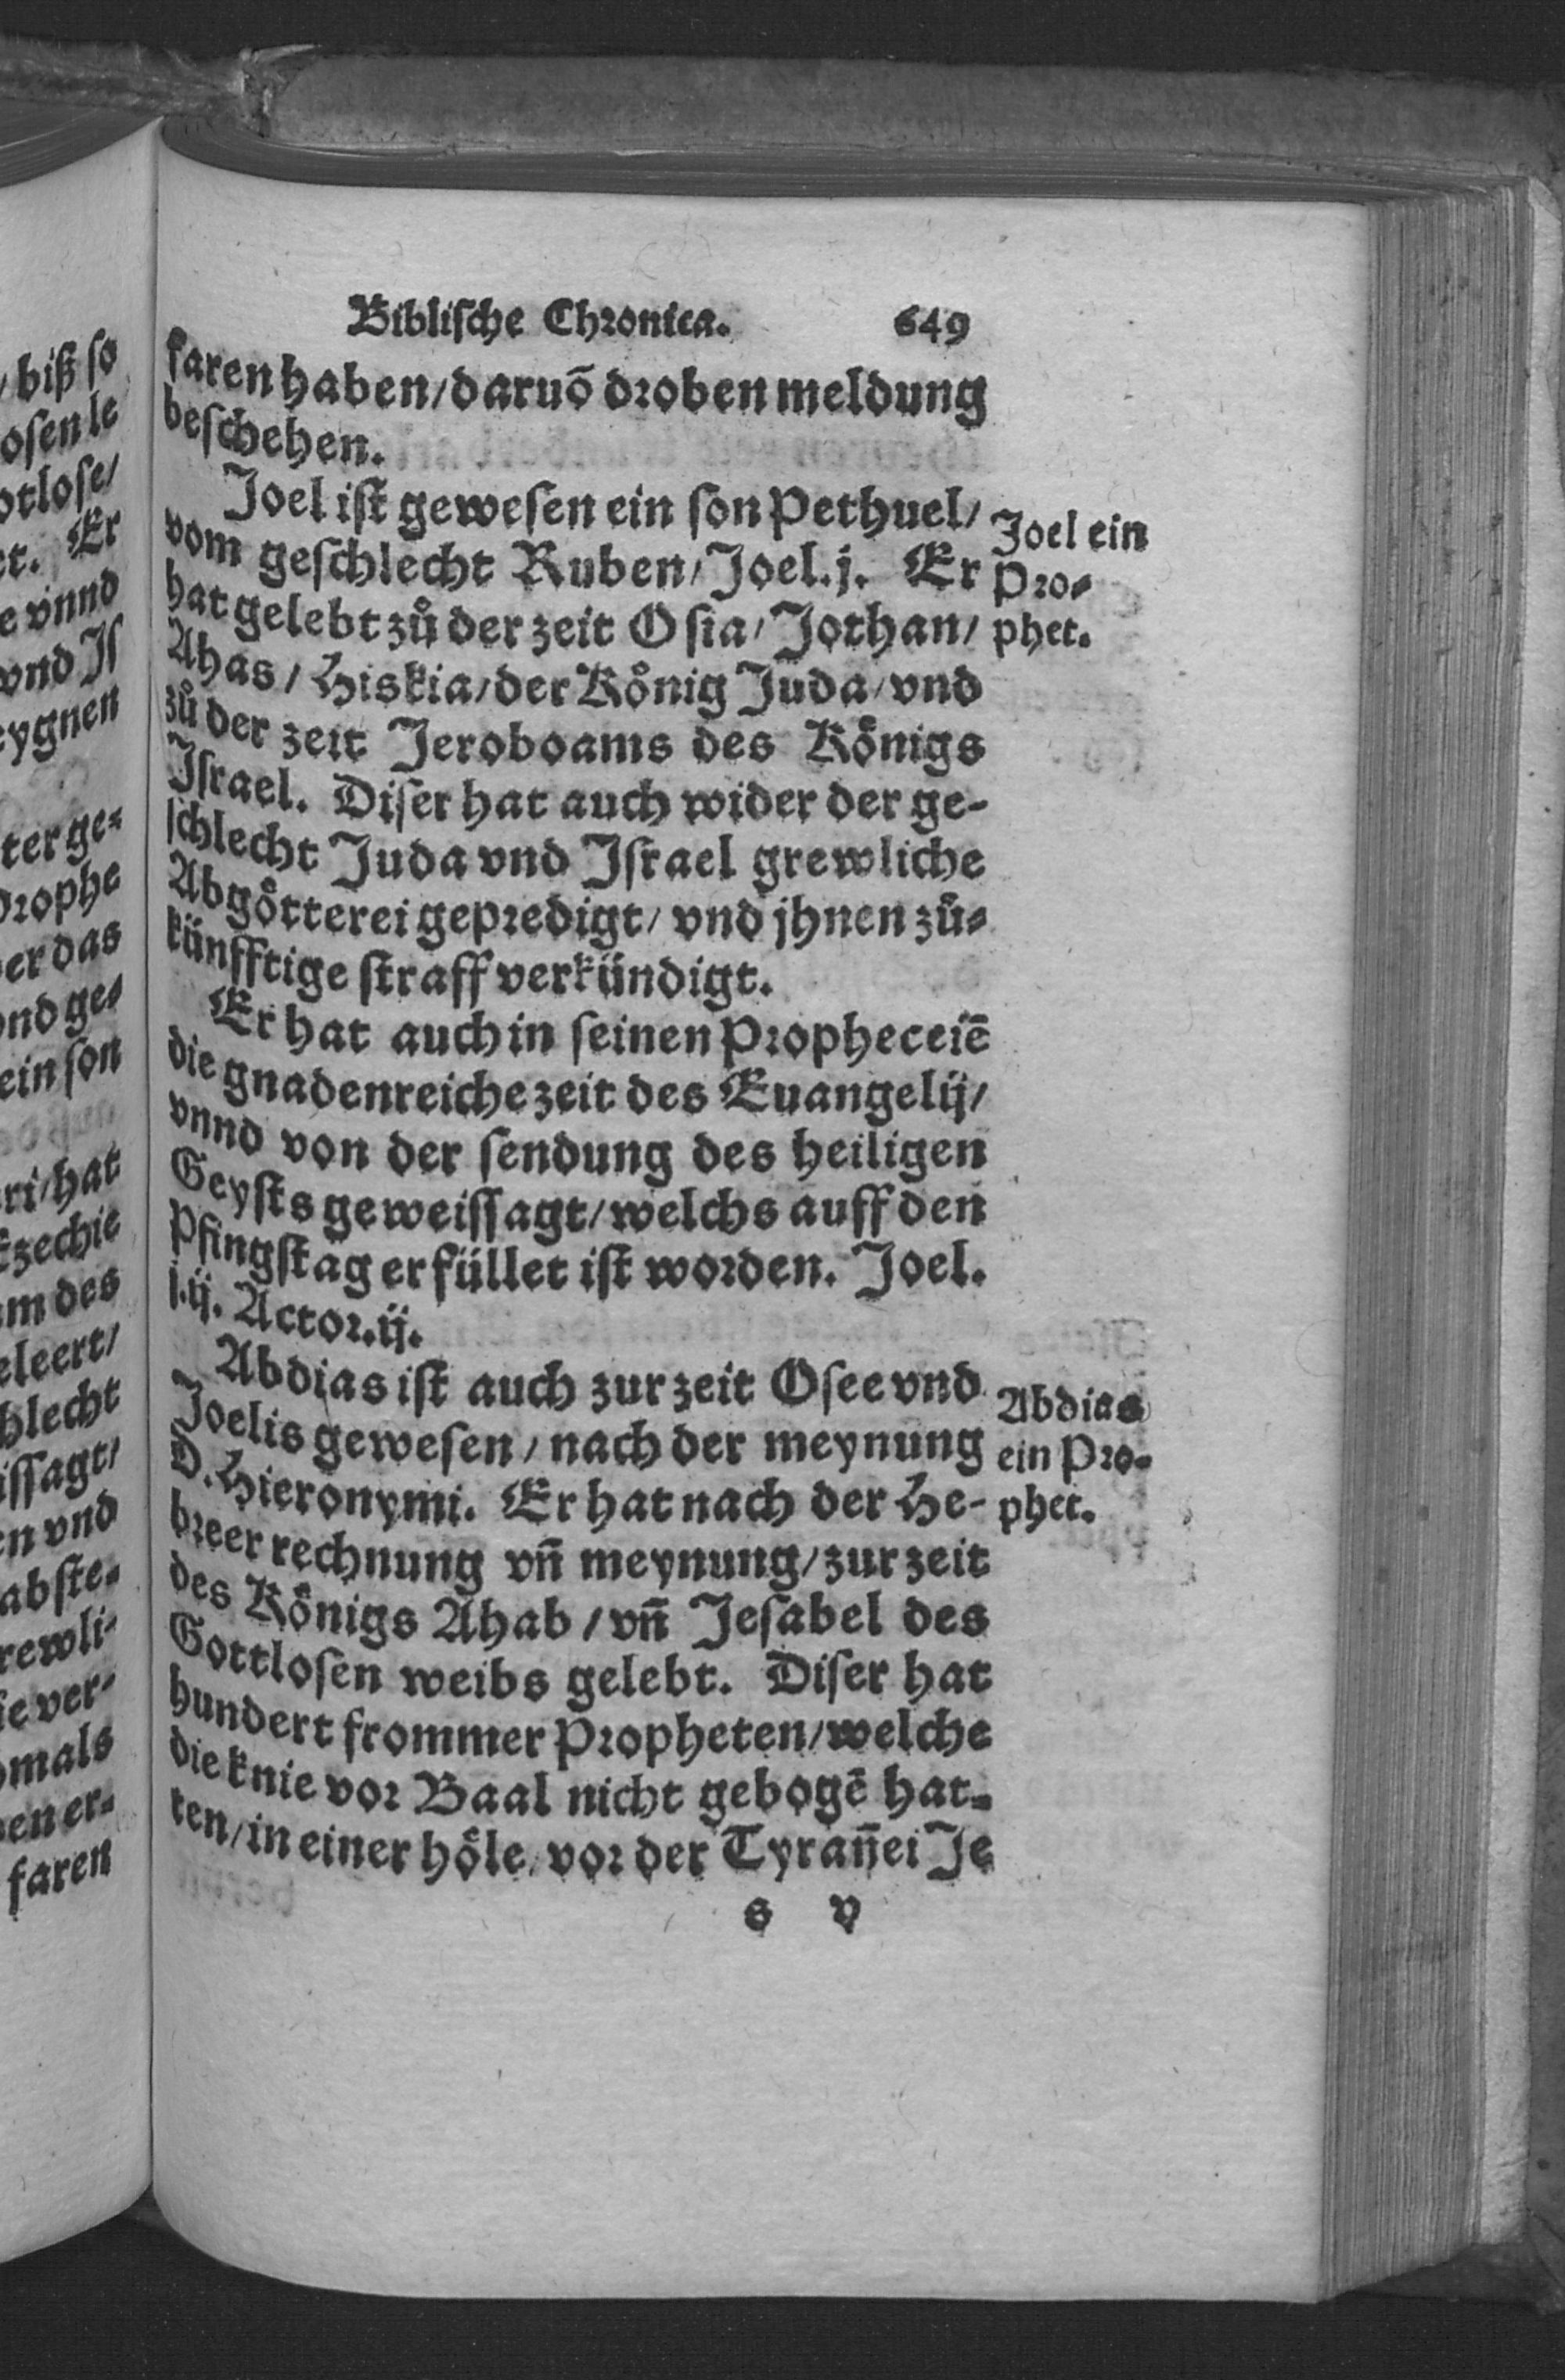 Biblische Chronica. 649
faren haben/daruõ droben meldung
beschehen.
Joel ist gewesen ein son Pethuel/
vom geschlecht Ruben/Joel.j. Er
hat gelebt zů der zeit Osia/Jothan/
Ahas/Hiskia/der Kůnig Juda/vnd
zů der zeit Jeroboams des Kônigs
Israel. Diser hat auch wider der ge-
schlecht Juda vnd Israel grewliche
Abgôtterei gepredigt/vnd jhnen zů-
künfftige straff verkündigt.
Er hat auch in seinen Propheceiē
die gnadenreiche zeit des Euangelij/
vnnd von der sendung des heiligen
Geysts geweissagt/welchs auff den
Pfingstag erfüllet ist worden. Joel.
j.ij. Actor.ij.
Abdias ist auch zur zeit Osee vnd
Joelis gewesen/nach der meynung
D. Hieronymi. Er hat nach der He-
breer rechnung vñ meynung/zur zeit
des Kônigs Ahab/vñ Jesabel des
Gottlosen weibs gelebt. Diser hat
hundert frommer Propheten/welche
die knie vor Baal nicht gebogē hat-
ten/in einer hôle/vor der Tyrañei Je
s v
Joel ein
Pro-
phet.
Abdias
ein Pro-
phet.
biß so
osen le
otlose/
et. Er
e vnnd
vnd Is
eygnen
ter ge-
Prophe
er das
vnd ge-
ein son
ri/hat
Ezechie
m des
eleert/
hlecht
issagt/
en vnd
abste-
rewli-
ie ver-
mals
en er-
faren